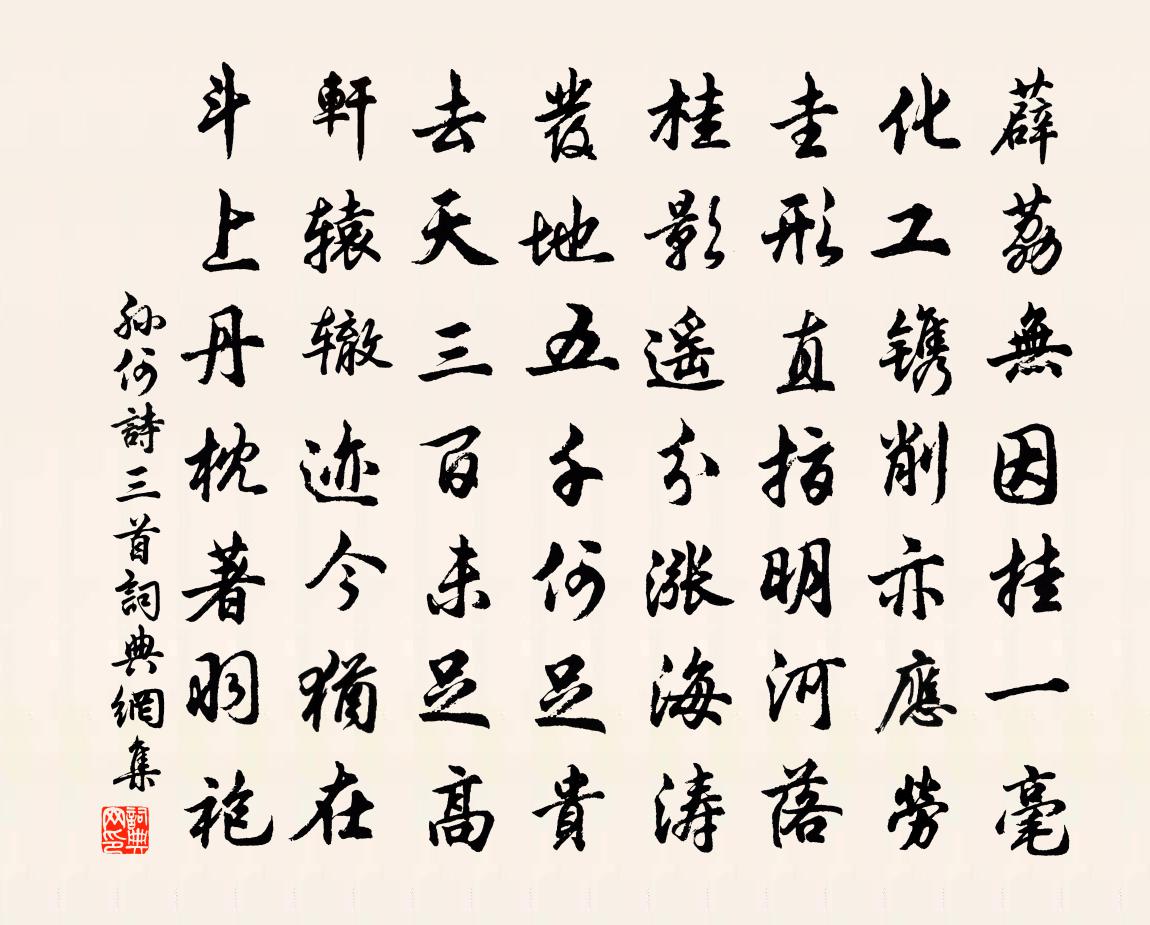 薜荔無因挂一毫
化工镌削亦應勞
圭形直指明河落
桂影遥分漲海涛
發地五千何足貴
去天三百未足高
軒辕辙迹今猶在
斗上丹枕著羽袍
孙何詩三首詞典網集
詞典網印